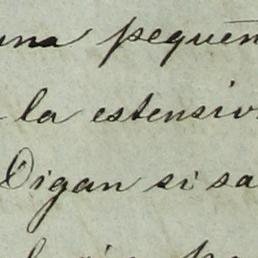 una pequeñ
la estensiv
Digan si sa